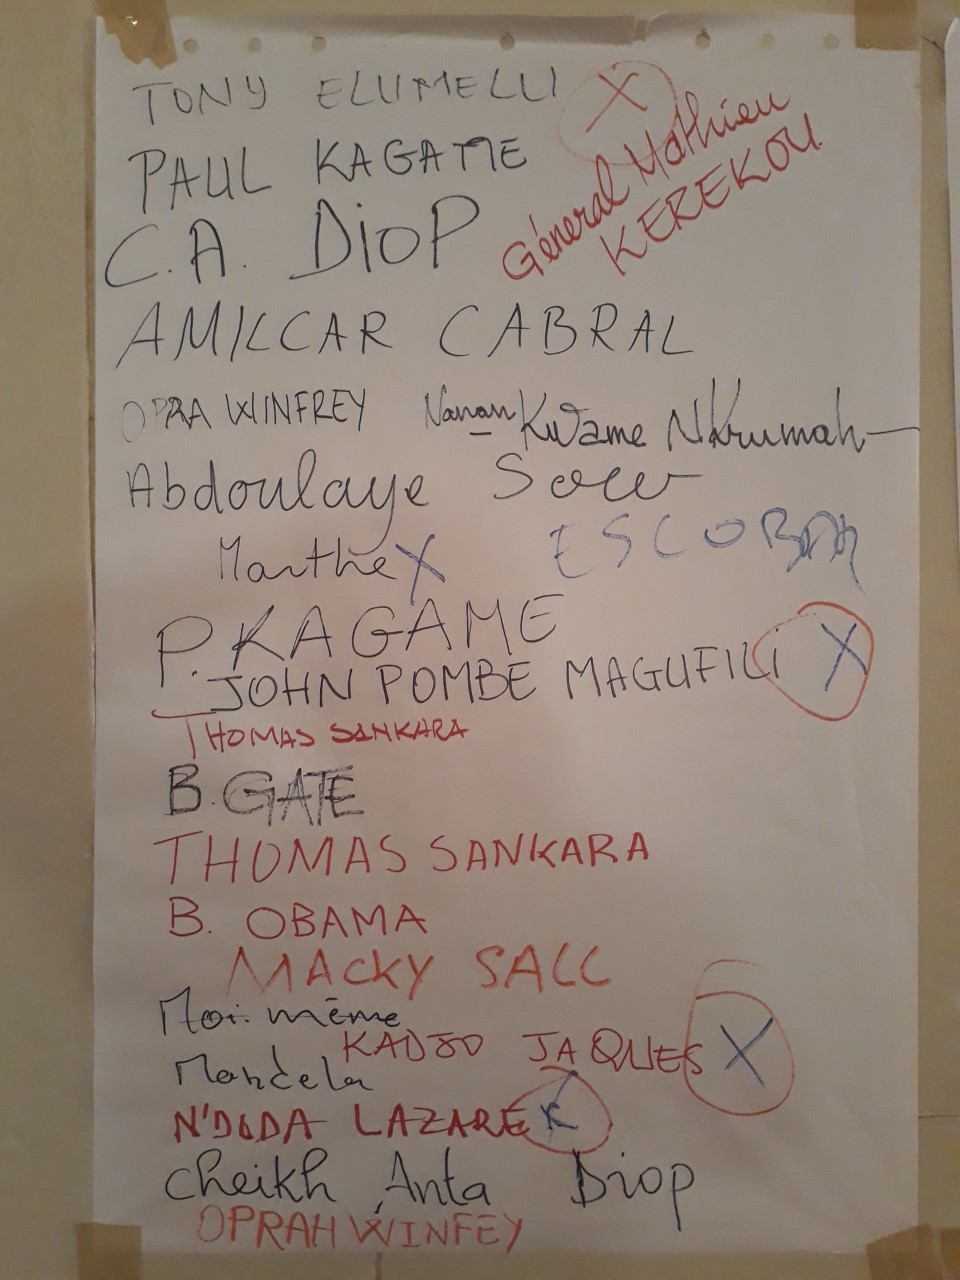 TONY ELUMELU X
PAUL KAGAME
Géneral Mathieu
KEREKOU
C.A. DioP
AMILCAR CABRAL
OPRA WINFREY
Nanan Kwame Nkrumah
Abdoulaye Sow
Marthe X
ESCOBAR
P. KAGAME
JOHN POMBE MAGUFILi X
THOMAS SANKARA
B. GATE
THOMAS SANKARA
B. OBAMA
MACKY SALL
Moi. même
KADJO JAQUES X
Mandela
N'DODA LAZARE X
Cheikh Anta Diop
OPRAH WINFEY